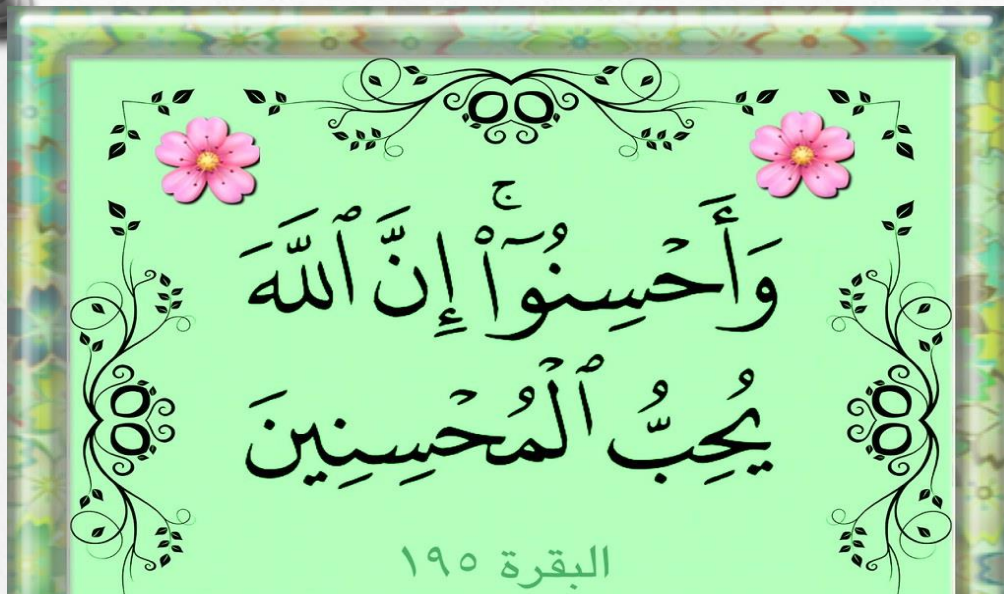 وَأَحْسِنُوٓا۟ ۚ إِنَّ ٱللَّهَ
يُحِبُّ ٱلْمُحْسِنِينَ
البقرة ١٩٥